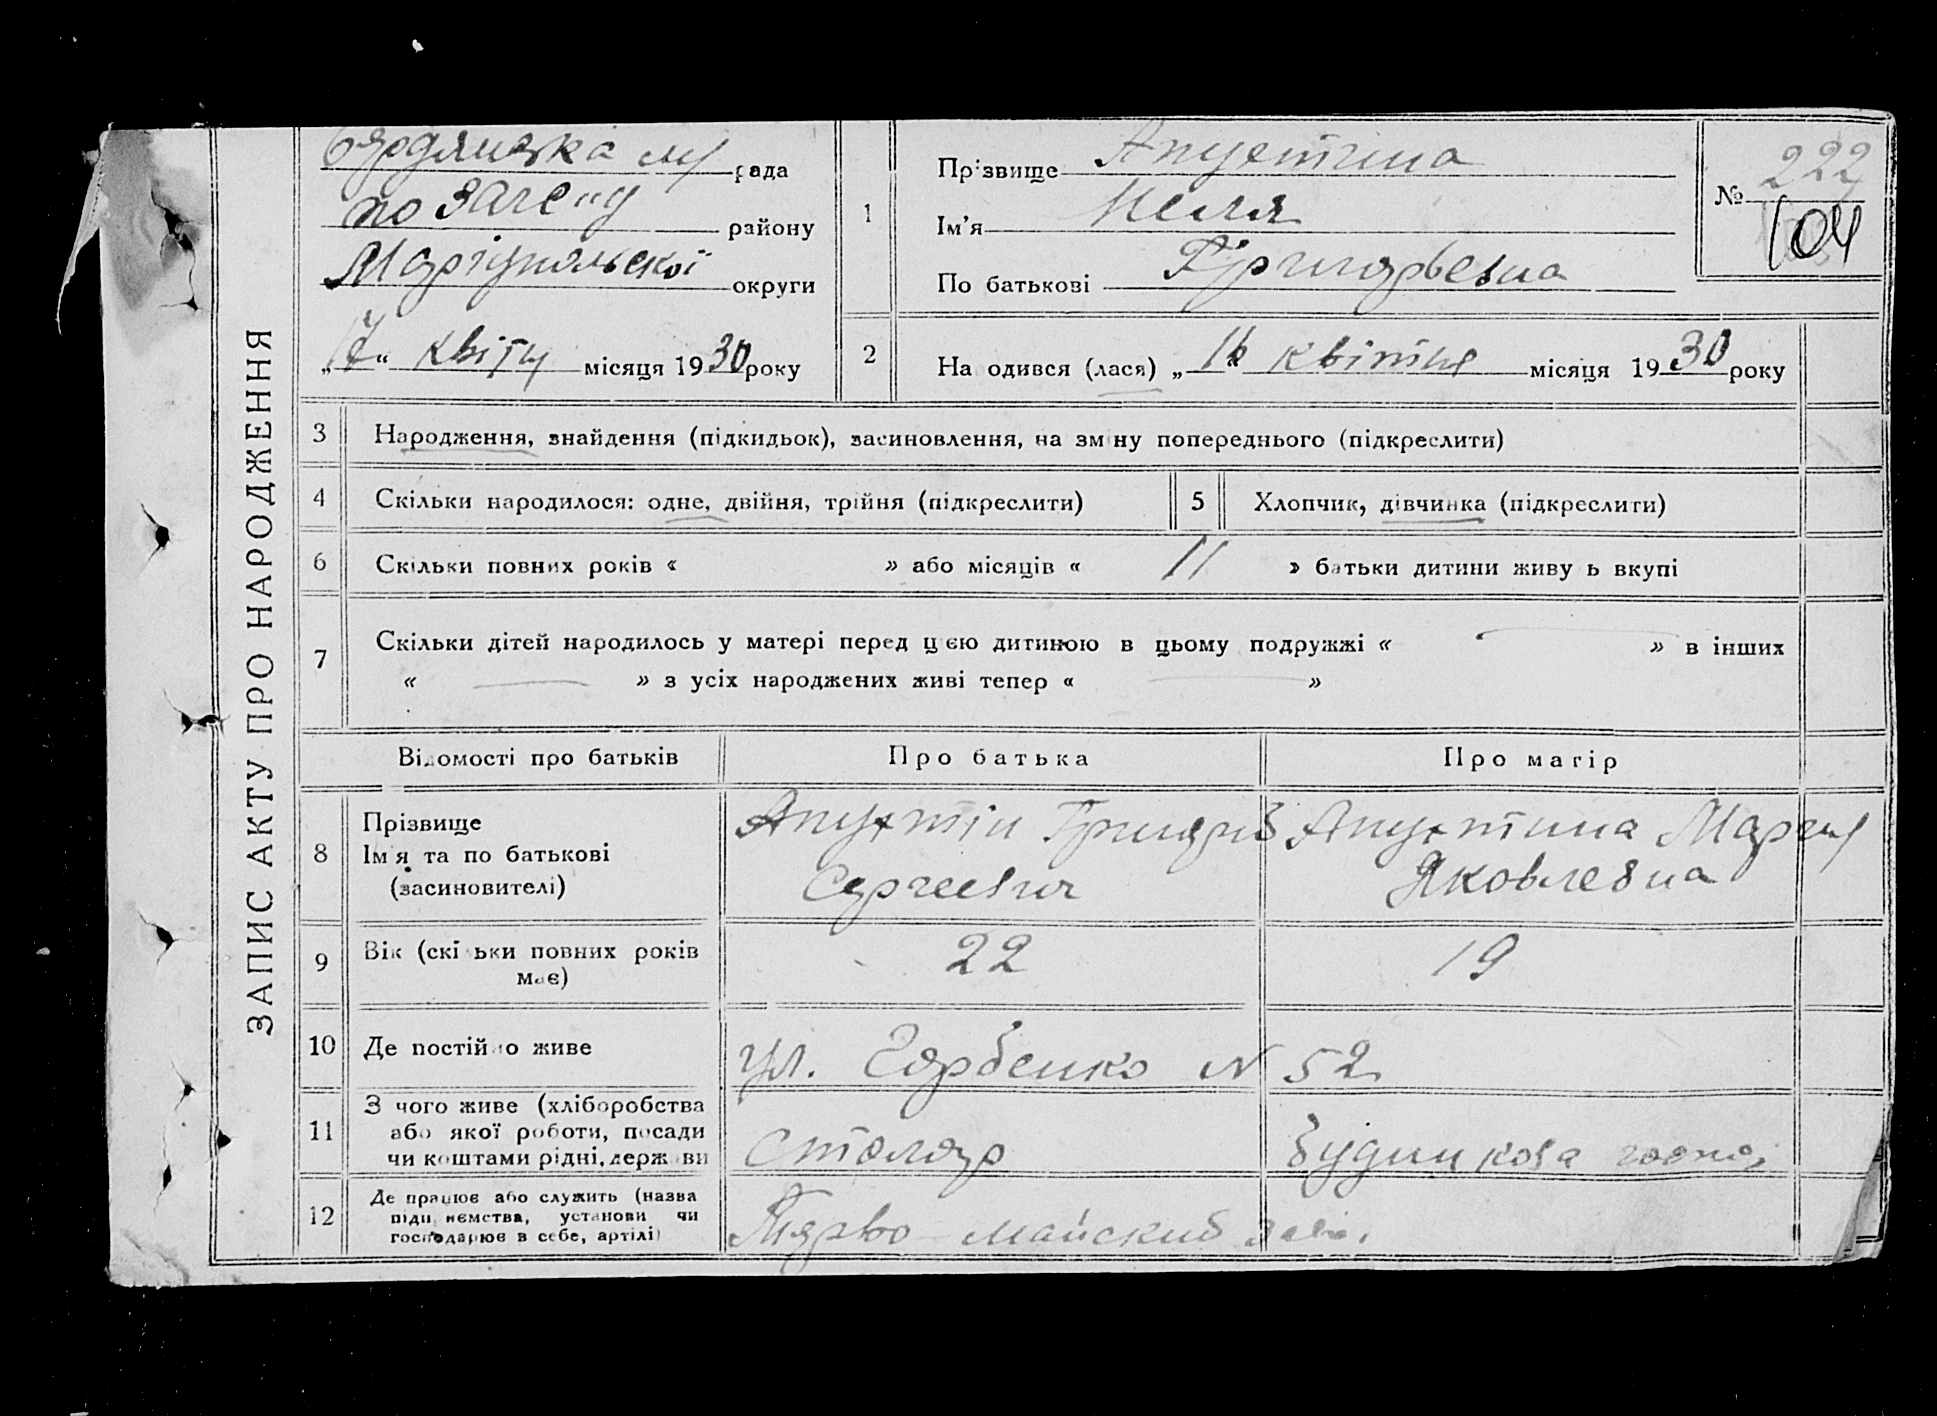 ЗАПИС АКТУ ПРО НАРОДЖЕННЯ
Бердянська м рада
по Загсу району
Маріупольської округи
„17“ квітн місяця 1930 року
1
Прізвище Апухтіна
Ім’я Неля
По батькові Григорьевна
№ 222
104
2
На одився (лася) „16“ квітня місяця 1930 року
3 Народження, знайдення (підкидьок), засиновлення, на зміну попереднього (підкреслити)
4 Скільки народилося: одне, двійня, трійня (підкреслити)
5 Хлопчик, дівчинка (підкреслити)
6 Скільки повних років « » або місяців « 11 » батьки дитини живу ь вкупі
7 Скільки дітей народилось у матері перед цією дитиною в цьому подружжі « — » в інших
« — » з усіх народжених живі тепер « — »
Відомості про батьків Про батька Про матір
8 Прізвище
Ім'я та по батькові
(засиновителі)
Апухтін Григорий
Сергеевич
Апухтина Мария
Яковлевна
9 Вік (скільки повних років
має)
22 19
10 Де постійно живе ул. Горбенко N 52
11 З чого живе (хліборобства
або якої роботи, посади
чи коштами рідні, держави
Столяр
12 Де працює або служить (назва
підприємства, установи чи
господарює в себе, артілі)
Перво-майский зав.